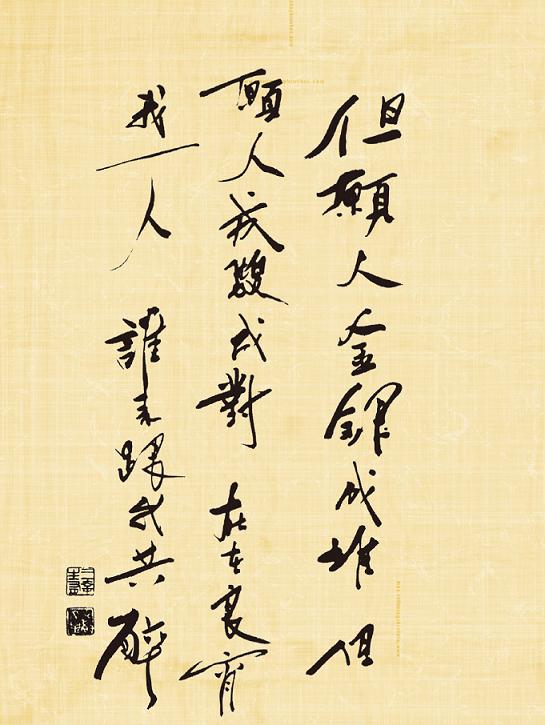 但願人金銀成堆 但
願人成雙成對 在在良宵
我一人 誰來跟我共醉